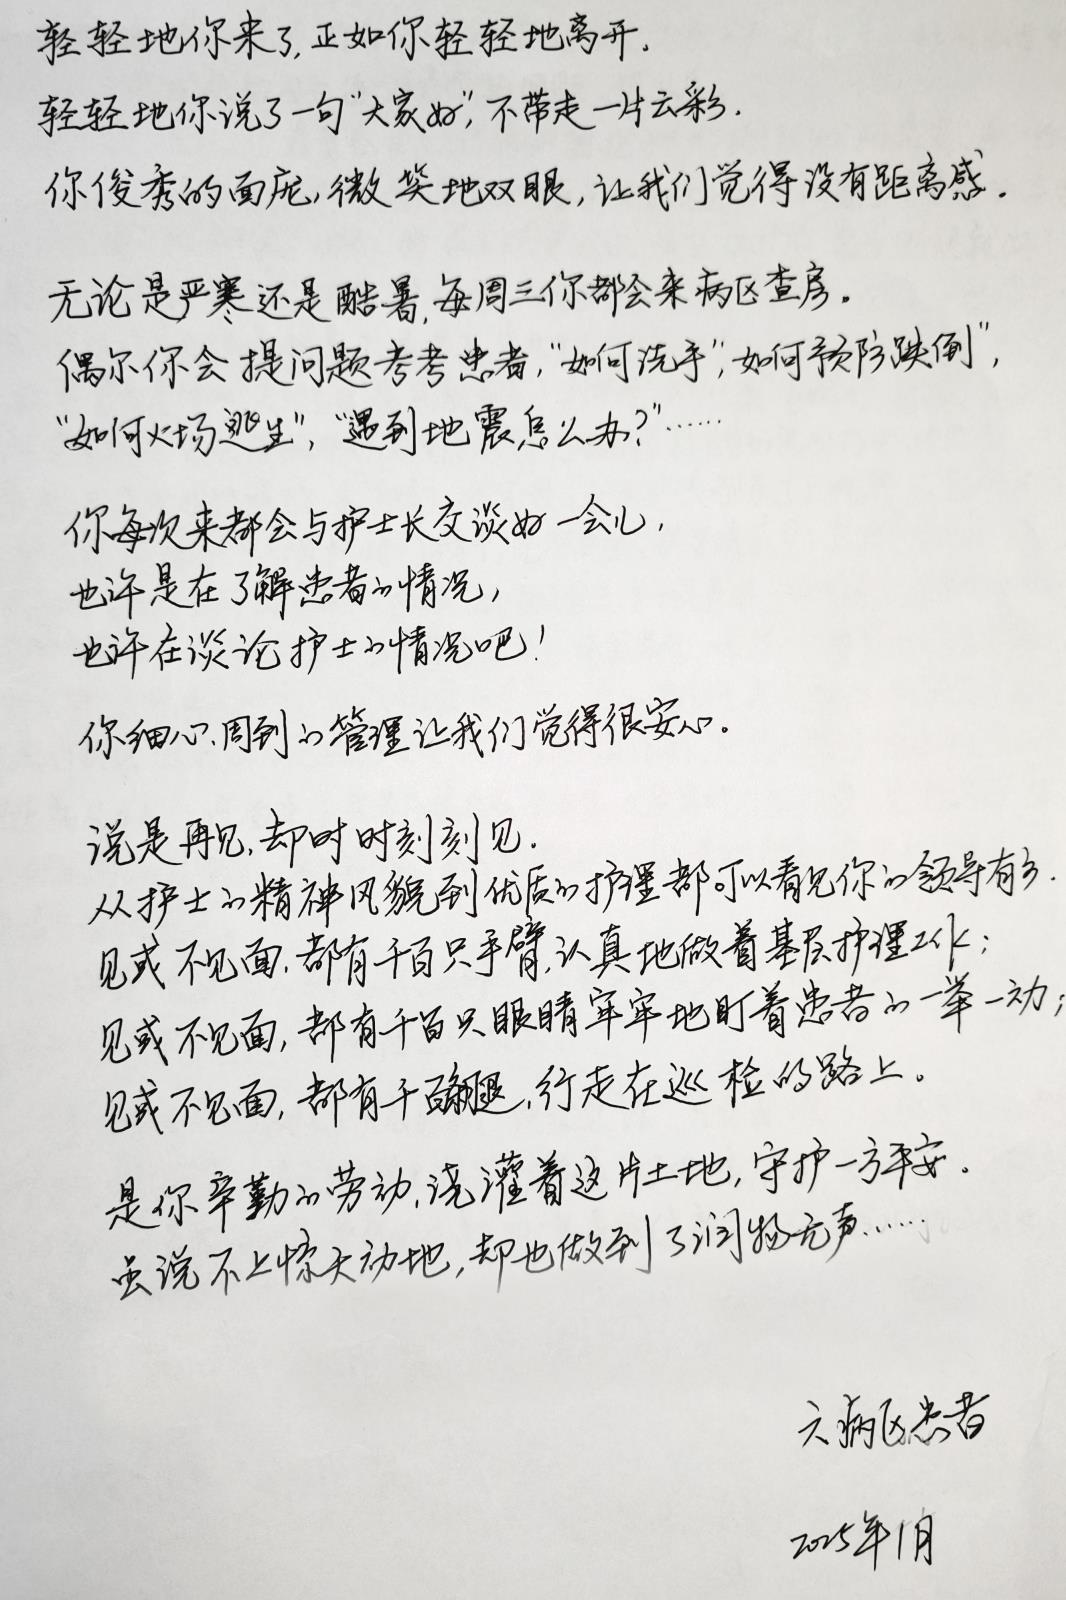 轻轻地你来了,正如你轻轻地离开.
轻轻地你说了一句"大家好",不带走一片云彩.
你俊秀的面庞,微笑地双眼,让我们觉得没有距离感.
无论是严寒还是酷暑,每周三你都会来病区查房。
偶尔你会提问题考考患者,"如何洗手","如何预防跌倒",
"如何火场逃生","遇到地震怎么办?"……
你每次来都会与护士长交谈好一会儿,
也许是在了解患者的情况,
也许在谈论护士的情况吧!
你细心、周到的管理让我们觉得很安心。
说是再见,却时时刻刻见.
从护士的精神风貌到优质的护理都可以看见你的领导有方.
见或不见面,都有千百只手臂,认真地做着基层护理工作;
见或不见面,都有千百只眼睛牢牢地盯着患者的一举一动;
见或不见面,都有千百条腿,行走在巡检的路上。
是你辛勤的劳动,浇灌着这片土地,守护一方平安.
虽说不上惊天动地,却也做到了润物无声……
六病区患者
2025年1月